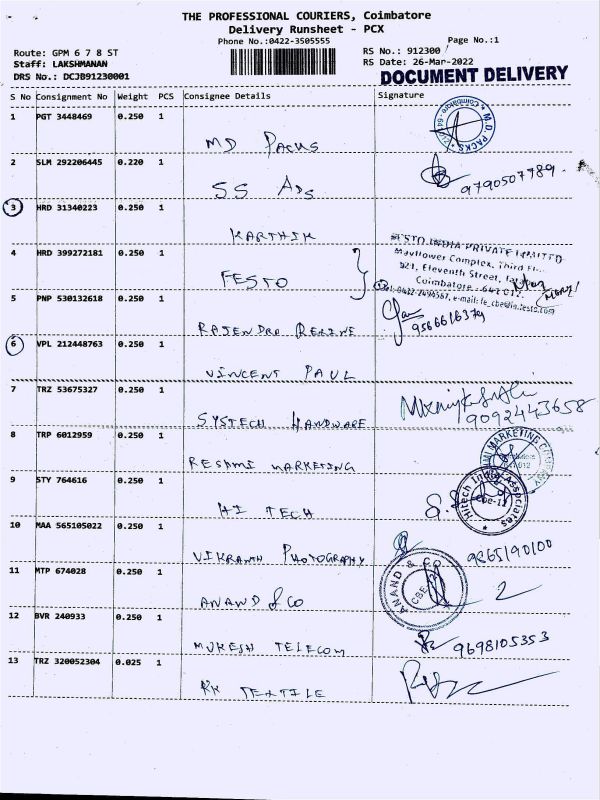 THE PROFESSIONAL COURIERS, Coimbatore
Delivery Runsheet - PCX
Phone No.:0422-3505555
Page No.:1
Route: GPM 6 7 8 ST
RS No.: 912300
Staff: LAKSHMANAN
RS Date: 26-Mar-2022
DRS No.: DCJB91230001
DOCUMENT DELIVERY
S No Consignment No Weight PCS Consignee Details Signature
1 PGT 3448469 0.250 1
MD PACKS
M.D. PACKS
2 SLM 292206445 0.220 1
SS ADS
9790507789
3 HRD 31340223 0.250 1
KARTHIK
4 HRD 399272181 0.250 1
FESTO
FESTO INDIA PRIVATE LIMITED
Mayflower Complex, Third
521, Eleventh Street,
Coimbatore - 641 012.
5 PNP 530132618 0.250 1
RAJENDRA
9566616379
6 VPL 212448763 0.250 1
VINCENT PAUL
7 TRZ 53675327 0.250 1
SYSTECH HARDWARE
9092443658
8 TRP 6012959 0.250 1
RESHMI MARKETING
MARKETING
9 STY 764616 0.250 1
HI TECH
Hitech India Associates
CBE-12
10 MAA 565105022 0.250 1
VIKRANTH PHOTOGRAPHY
9865190100
11 MTP 674028 0.250 1
ANAND & CO
ANAND & CO
CBE
12 BVR 240933 0.250 1
MUKESH TELECOM
9698105353
13 TRZ 320052304 0.025 1
KK TEXTILE